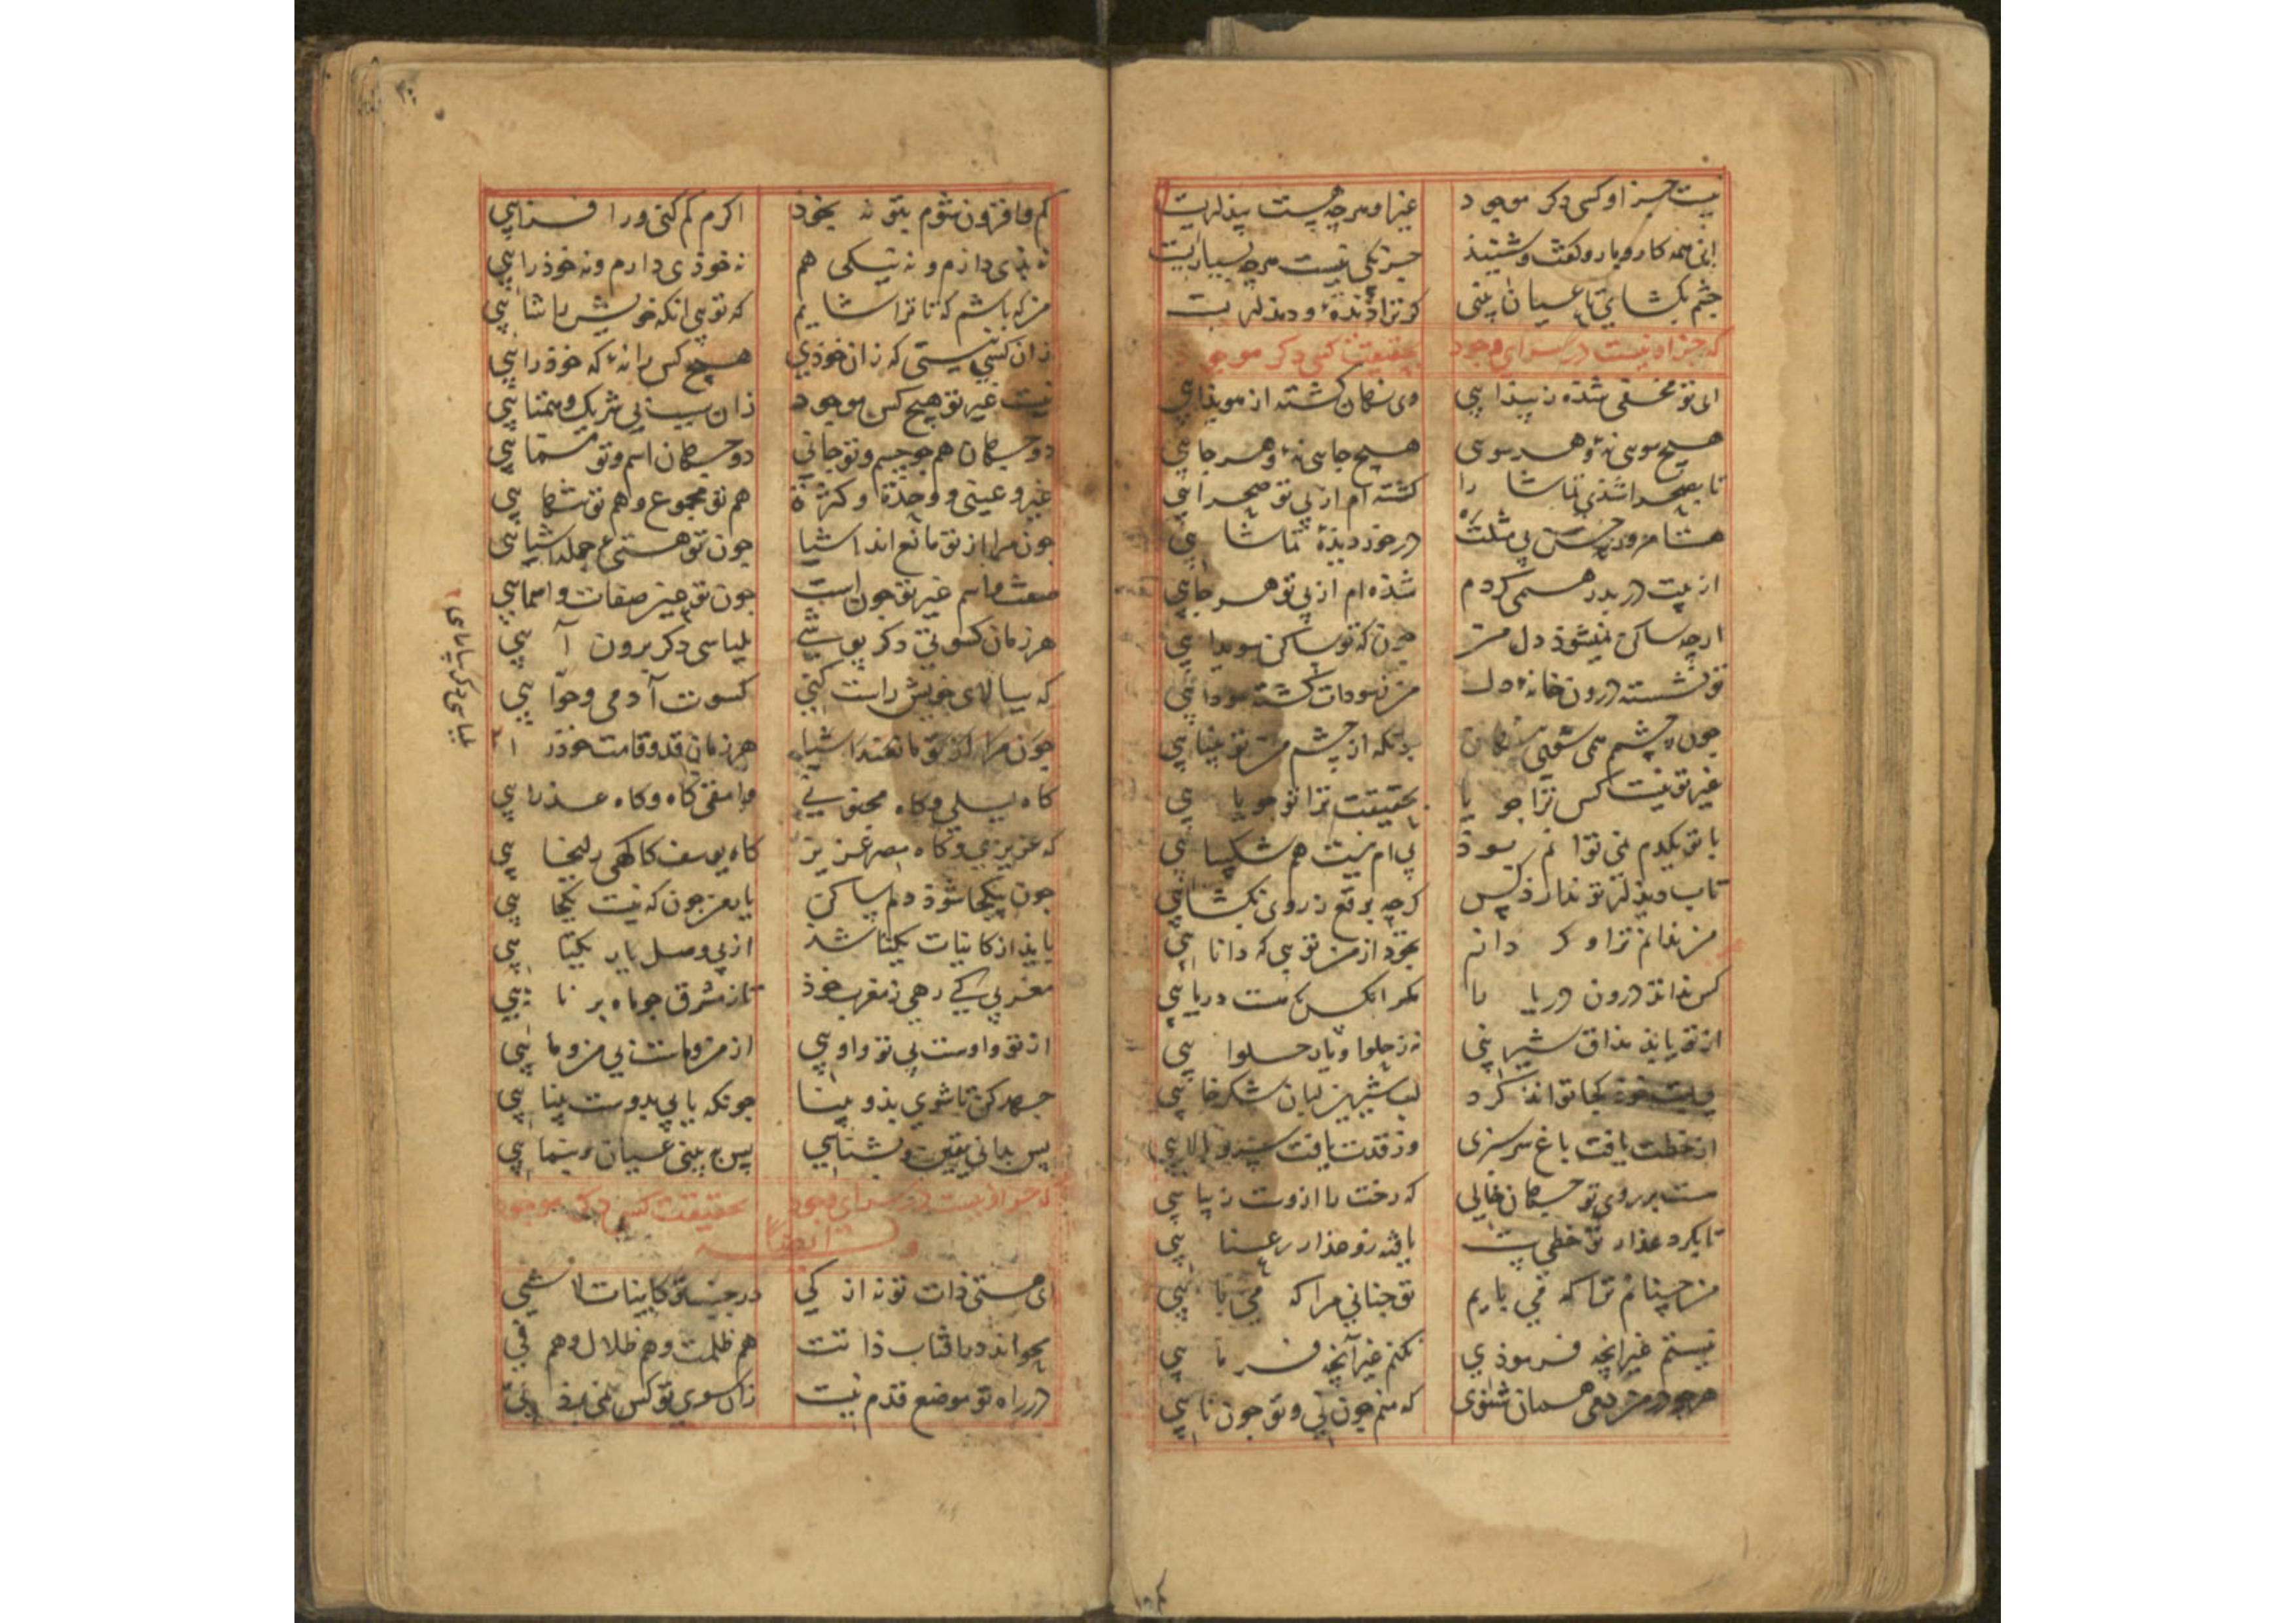 نیست جز او کسی دکر موجود غیر او هرچه هست پندلریت
این همه کار و بار و کفت و شنید جز یکی نیست هرچه بسیاریت
چشم بکشای تا عیان بینی کو ترا دیده و دیدلریت
که جز او نیست در سرای وجود بحقیقت کسی دکر موجود
ای تو مخفی شده ز پیدایی وی نهان کشته از هویدایی
هیچ سوی نهٔ و هر سوی هیچ جایی نهٔ و هر جایی
تا بصحرا شدی تماشا را کشته ام از پی تو صحرایی
در خور دیدهٔ تماشایی
از پیت در بدر همی کردم شده ام از پی تو هر جایی
ارچه ساکن نمیشود دل من چون که تو ساکن سویدایی
تو نشسته درون خانهٔ دل من ز سودات کشته سودایی
چون ز چشم همی شوی نهان زانکه از چشم من تو بینایی
غیر تو نیست کس ترا جویا بحقیقت ترا تو جویایی
با تو یکدم نمی توانم بود بی ام نیست هم شکیبایی
تاب دیدلر تو ندارد کس کرچه برقع ز روی نکشایی
من ندانم ترا و کر دانم بخود از من تویی که دانایی
کس نداند درون دریا را مکر انکس که هست دریایی
از تو یابد مذاق شیرینی نه ز حلوا و یار حلوایی
کجا تواند کرد لب شیرین لبان شکرخایی
از خطت یافت باغ سرسبزی وز قدت یافت سرو بالایی
هست بر روی تو جهان خالی که رخت را ازوست زیبایی
تا بکرد عذار تو خطی است یافته زو عذار رعنایی
من چنانم ترا که می باریم تو چنانی مرا که می بایی
نیستم غیر انچه فرمودی نکنم غیر آنچه فرمایی
هرچه در من دمی همان شنوی که منم چون نی و تو چون نایی
کم و افزون شوم بتو نه بخود اکرم کم کنی ور افزایی
نه بدی دارم و نه نیکی هم نه خودی دارم و نه خود رایی
من که باشم که تا ترا شایم که تویی انکه خویش را شایی
زان کسی نیستی که زان خودی هیچ کس را نهٔ که خود رایی
نیست غیر تو هیچ کس موجود زان سبب بی شریک و همتایی
دو جهان هم چو جسم و تو جانی دو جهان اسم و تو مسمایی
غیر و عینی و وحدة و کثرة هم تو مجموع و هم تو تنهایی
چون مرا از تو مانع اند اشیا چون تو هستی ع جمله اشیایی
صفت و اسم غیر تو چون است چون تو عین صفات و اسمایی
هر زمان کسوتی دکر پوشی بلباسی دکر برون آیی
که ببالای خویش راست کنی کسوت آدمی و حوّایی
چون مرا از تو مانعند اشیا هر زمان قد و قامت خود را
کاه لیلی و کاه مجنونی وامقی کاه و کاه عذرایی
که عزیزی و کاه مصر عزیز کاه یوسف کهی زلیخایی
چون بیکجا شود دلم ساکن یار من چون که نیست یکجایی
باید از کاینات یکتا شد از پی وصل یار یکتایی
مغربی کی رهی ز مغرب خود تا ز مشرق چو ماه برنایی
از تو وا اوست بی تو وا اویی از من و ماست بی من و مایی
جهد کن تا شوی بدو بینا چونکه یابی بدوست بینایی
پس بدانی یقین و بشناسی پس به بینی عیان و بنمایی
که جز او نیست در سرای وجود بحقیقت کسی دکر موجود
وله ایضا
ای هستی ذات تو نه از کی در جنب تو کاینات لا شیی
محو اند در آفتاب ذاتت هم ظلمت و هم ظلال و هم فی
در راه تو موضع قدم نیست زان سوی تو کس نمی برد پی